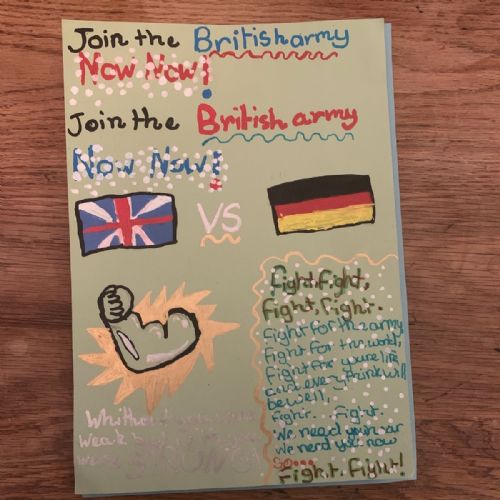 Join the British army
Now Now!
Join the British army
Now Now!
VS
Fight, Fight,
Fight, Fight.
Fight for the army
Fight for this world,
Fight for youre life
be well,
Fight. Fight.
We need you our
We nerd you now
So....
Fight. Fight!
Whithout you
weak
were STRONG